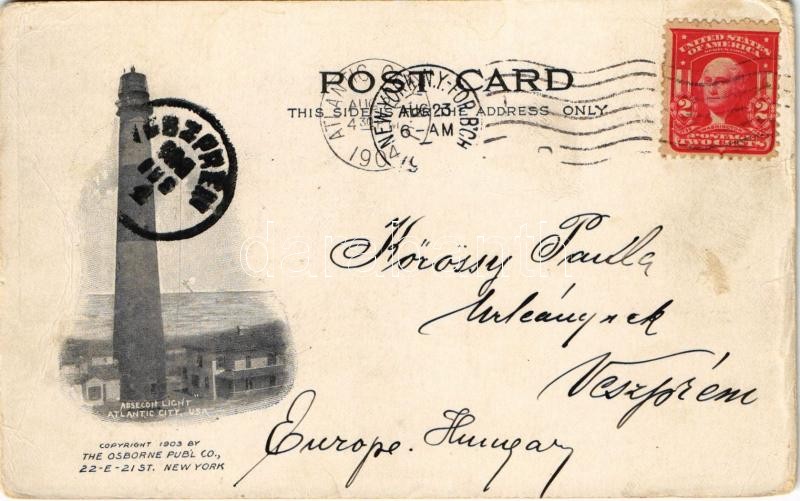 POST CARD
THIS SIDE IS FOR THE ADDRESS ONLY
NEW YORK, N.Y. FOR. BCH
AUG 23
6-AM
1904
ATLANTIC
UNITED STATES
OF AMERICA
2 2
WASHINGTON
POSTAGE
TWO CENTS
VESZPRÉM
Kőrössy Paula
Urleánynak
Veszprém
Europe. Hungary
"ABSECON LIGHT"
ATLANTIC CITY, USA
COPYRIGHT 1903 BY
THE OSBORNE PUB'L CO.,
22-E-21 ST. NEW YORK
darabanth